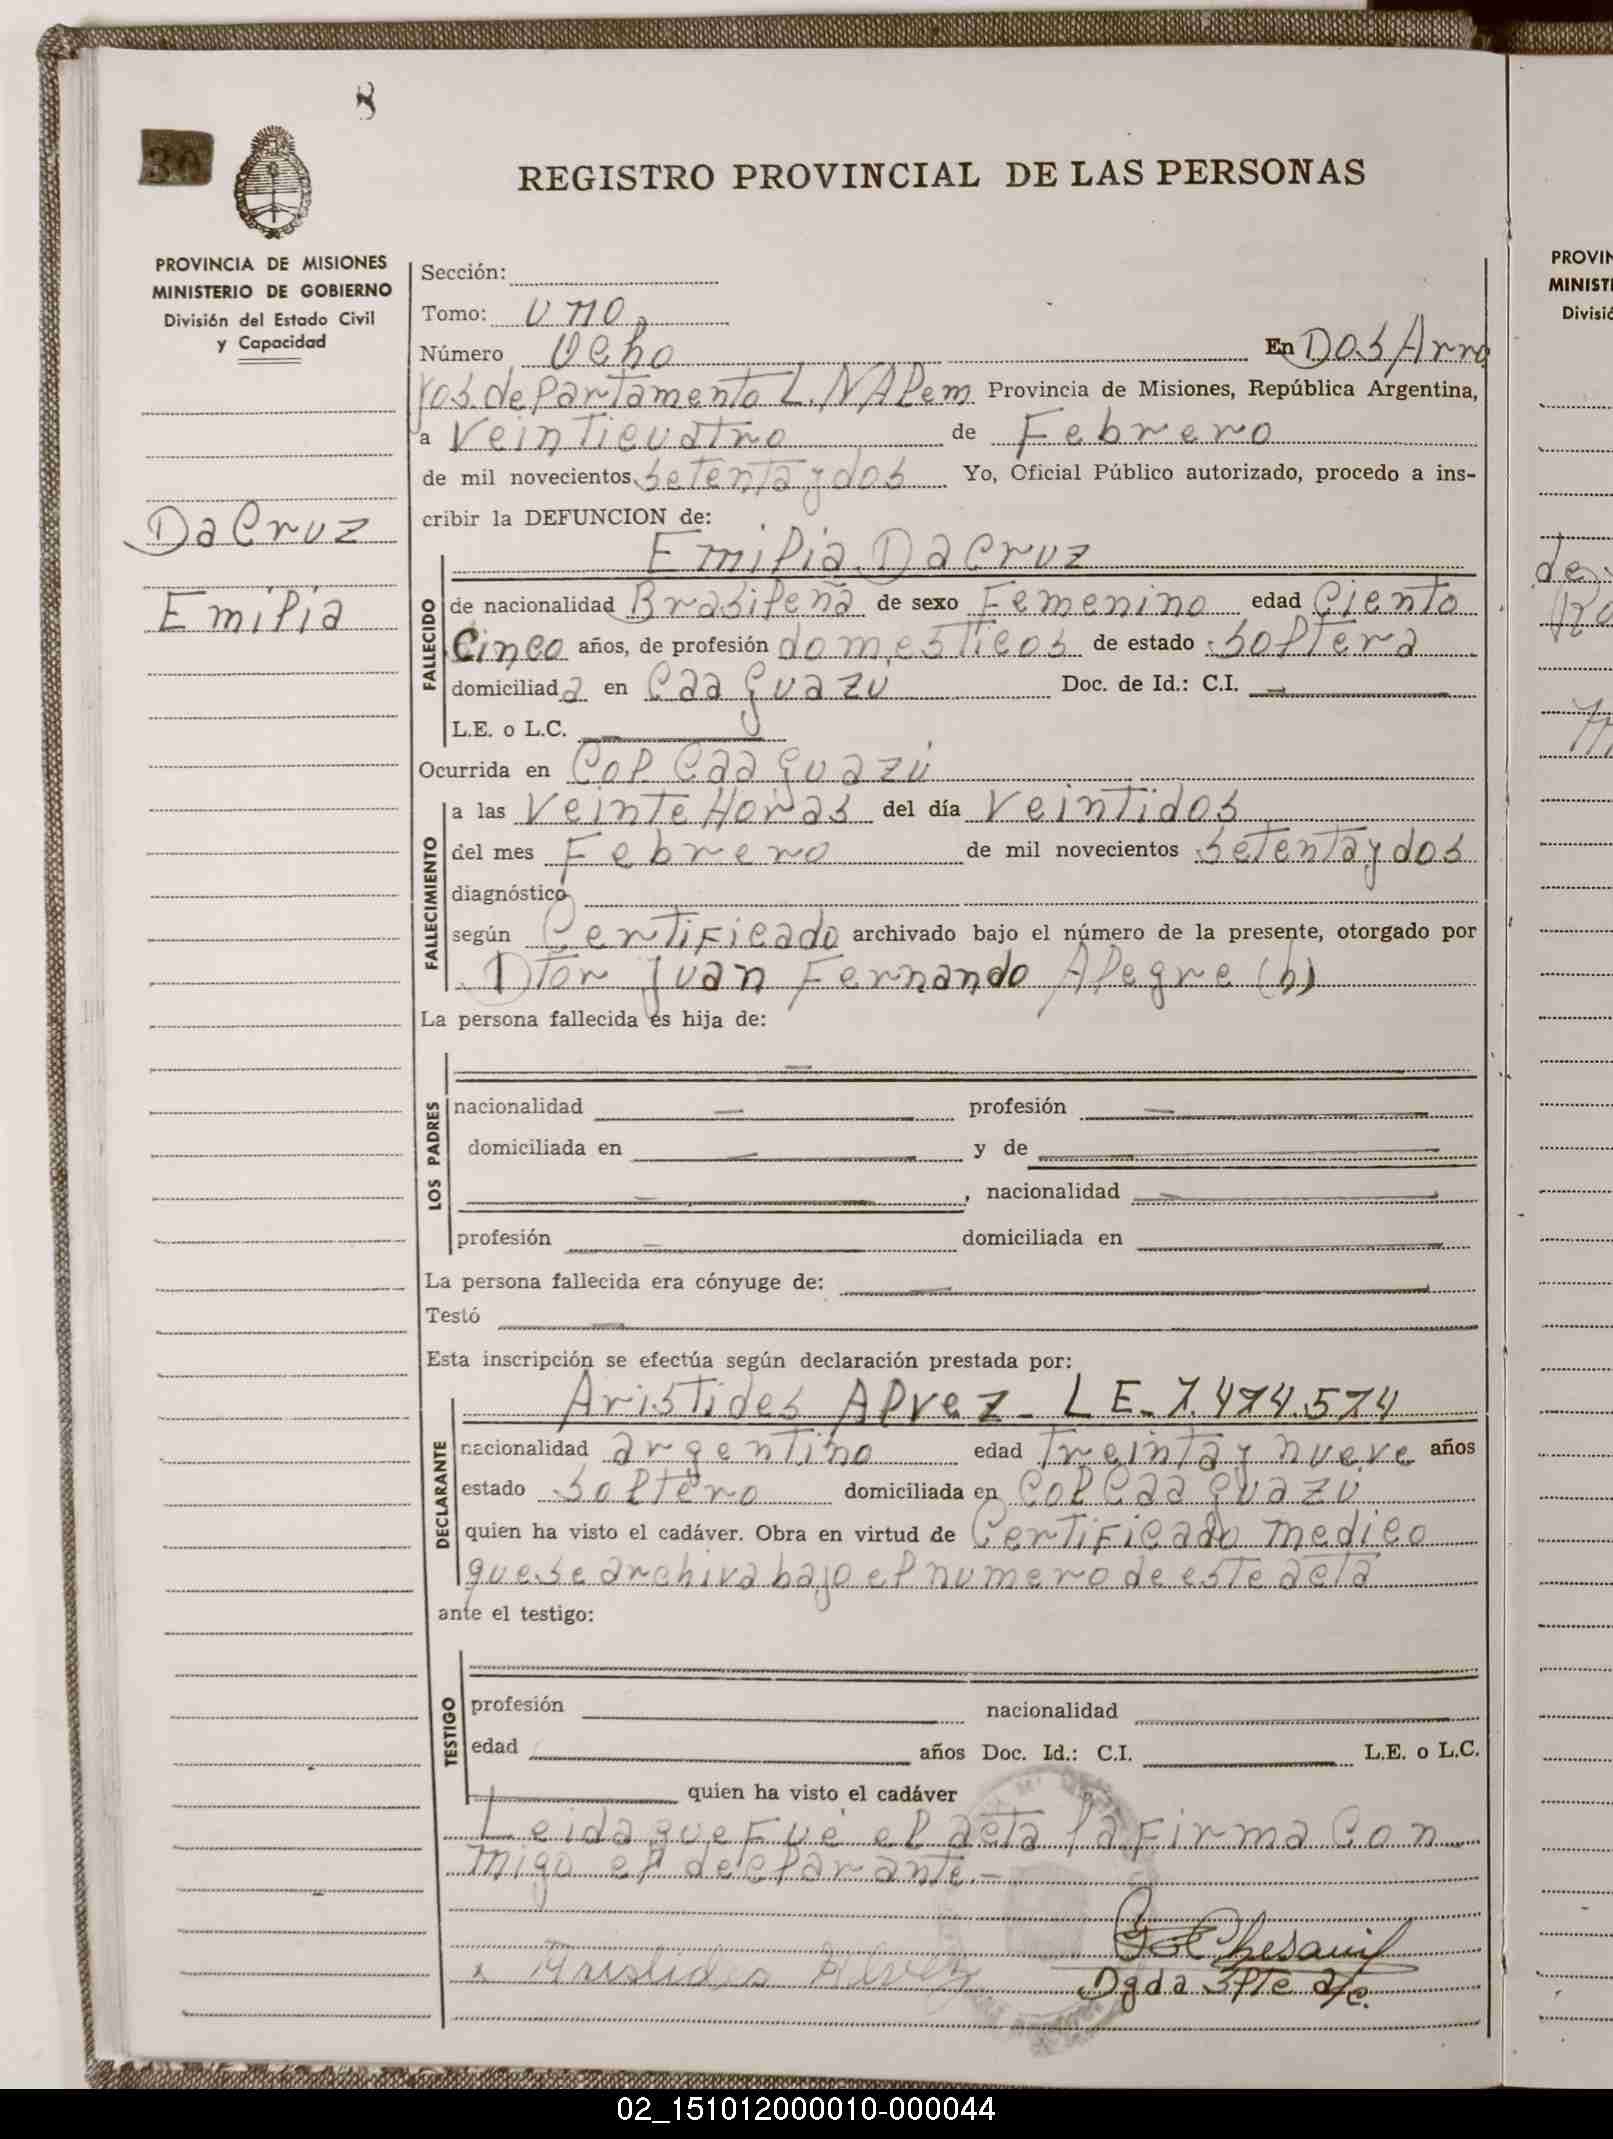 8
30
REGISTRO PROVINCIAL DE LAS PERSONAS
PROVINCIA DE MISIONES
MINISTERIO DE GOBIERNO
División del Estado Civil
y Capacidad
Da Cruz
Emilia
Sección:
Tomo: uno
Número Ocho En Dos Arro
yos departamento L. N Alem Provincia de Misiones, República Argentina,
a Veinticuatro de Febrero
de mil novecientos setenta y dos Yo, Oficial Público autorizado, procedo a ins-
cribir la DEFUNCION de:
Emilia Da Cruz
FALLECIDO
de nacionalidad Brasileña de sexo Femenino edad Ciento
Cinco años, de profesión domesticos de estado soltera
domiciliada en Caa Guazu Doc. de Id.: C.I. —
L.E. o L.C. —
Ocurrida en Col Caa Guazú
FALLECIMIENTO
a las Veinte Horas del día Veintidos
del mes Febrero de mil novecientos setenta y dos
diagnóstico
según Certificado archivado bajo el número de la presente, otorgado por
Dtor Juan Fernando Alegre (h)
La persona fallecida es hija de:
LOS PADRES
—
nacionalidad — profesión —
domiciliada en — y de —
—, nacionalidad —
profesión — domiciliada en —
La persona fallecida era cónyuge de: —
Testó —
Esta inscripción se efectúa según declaración prestada por:
DECLARANTE
Aristides Alvez - L E. 7.474.574
nacionalidad argentino edad treinta y nueve años
estado soltero domiciliada en Col Caa Guazú
quien ha visto el cadáver. Obra en virtud de Certificado medico
que se archiva bajo el numero de este acta
ante el testigo:
TESTIGO
profesión nacionalidad
edad años Doc. Id.: C.I. L.E. o L.C.
quien ha visto el cadáver
Leida que Fué el acta la Firma Con
migo el declarante.-
x Aristides Alvez
Dgda Splte a/c.
PROVIN
MINISTE
Divisió
de
02_151012000010-000044